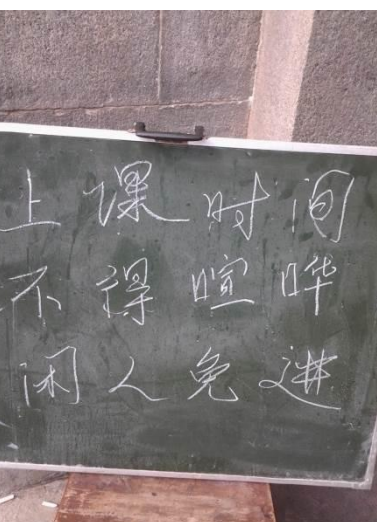 上课时间
不得喧哗
闲人免进